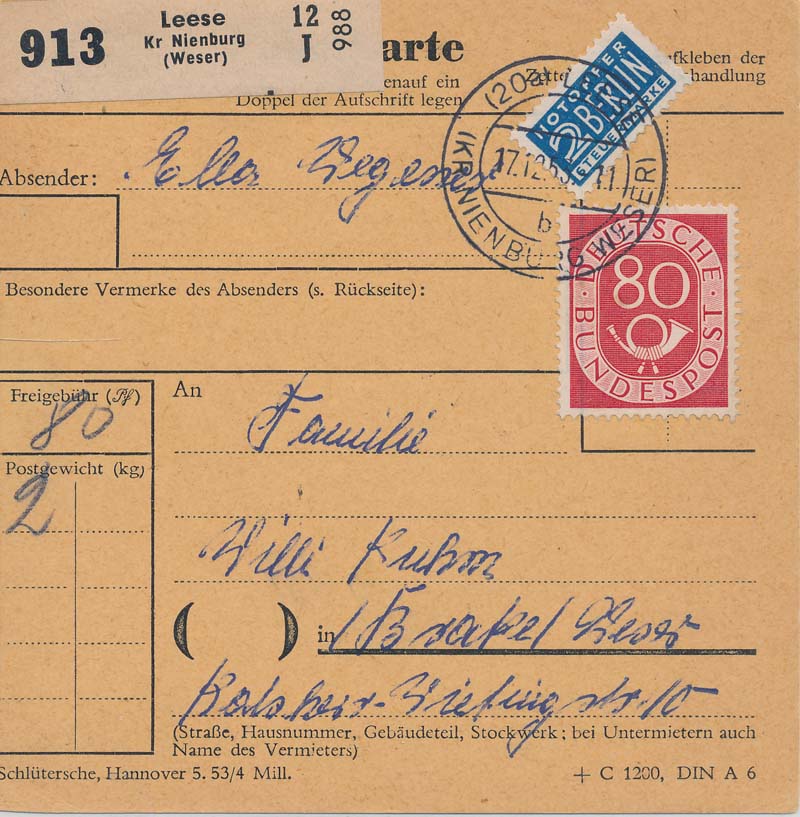 913
Leese
Kr Nienburg
(Weser)
12
J
988
arte
enauf ein
Doppel der Aufschrift legen
Zette
fkleben der
handlung
NOTOPFER
2 BERLIN
STEUERMARKE
(20a)
17.12.53 11
b
(KR NIENBURG WESER)
Absender: Ella Wegener
DEUTSCHE
BUNDESPOST
80
Besondere Vermerke des Absenders (s. Rückseite):
Freigebühr (Pf)
80
Postgewicht (kg)
2
An
Familie
Willi Kuhm
( ) in Brake/Weser
str. 10
(Straße, Hausnummer, Gebäudeteil, Stockwerk; bei Untermietern auch
Name des Vermieters)
Schlütersche, Hannover 5. 53/4 Mill.
+ C 1200, DIN A 6